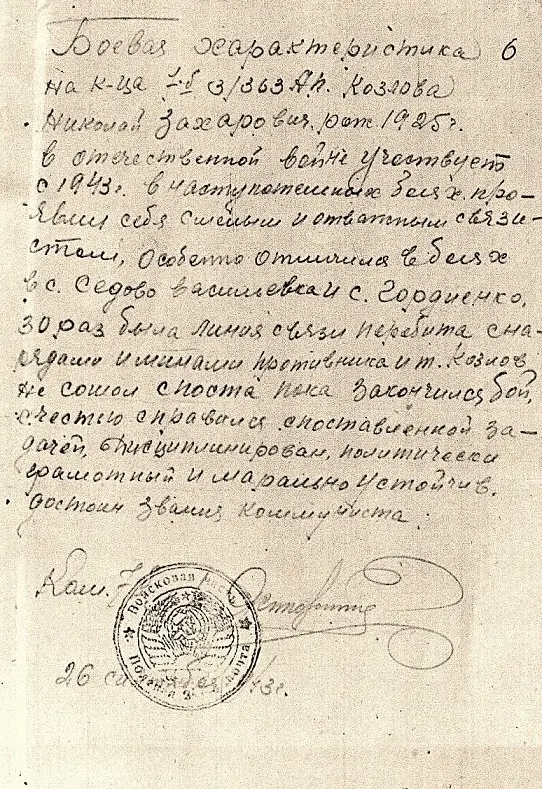 Боевая характеристика 6
на к-ца 7-Б 3/363 Ап. Козлова
Николай Захарович рож 1925г.
в отечественной войне участвует
с 1943г. в наступательных боях про-
явил себя смелым и отважным связи-
стом, Особенно отличился в боях
в с. Седово Васильевка и с. Гордиенко,
30 раз была линия связи перебита сна-
рядами и минами противника и т. Козлов
не сошол с поста пока закончился бой,
с честью справился с поставленной за-
дачей, дисциплинирован, политически
грамотный и марально устойчив.
достоин звания коммуниста
Ком.
Войсковая
Полевая почта
26 43г.